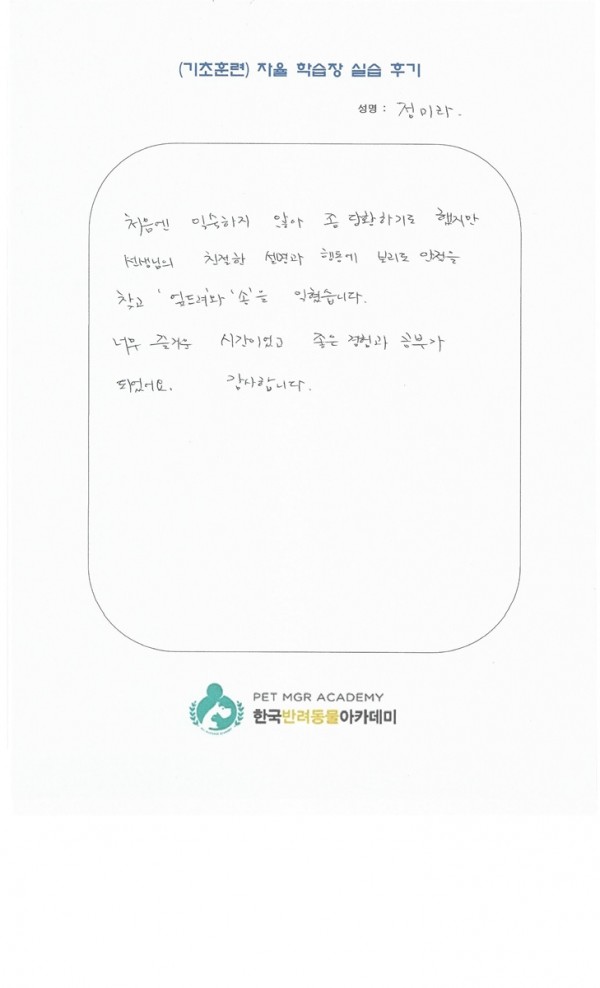 (기초훈련) 자율 학습장 실습 후기
성명 : 정미라.
처음엔 익숙하지 않아 좀 당황하기도 했지만
선생님의 친절한 설명과 행동에 보리도 안정을
찾고 '엎드려'와 '손'을 익혔습니다.
너무 즐거운 시간이었고 좋은 경험과 공부가
되었어요. 감사합니다.
PET MGR ACADEMY
한국반려동물아카데미